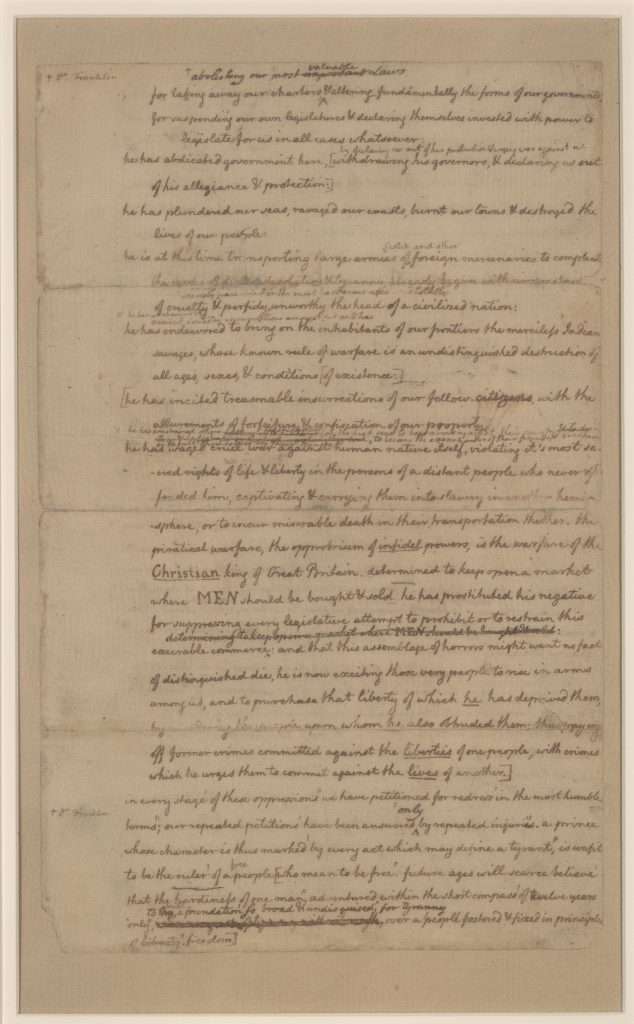 + Dr. Franklin
abolishing our most important valuable Laws
for taking away our charters & altering fundamentally the forms of our governments,
for suspending our own legislatures & declaring themselves invested with power to
legislate for us in all cases whatsoever.
by declaring us out of his protection & waging war against us
he has abdicated government here, [withdrawing his governors, & declaring us out
of his allegiance & protection:]
he has plundered our seas, ravaged our coasts, burnt our towns & destroyed the
lives of our people:
Scotch and other
he is at this time transporting large armies of foreign mercenaries to compleat
the works of death desolation & tyranny already begun with circumstances
of cruelty & perfidy unworthy the head of a civilized nation:
he has endeavored to bring on the inhabitants of our frontiers the merciless Indian
savages, whose known rule of warfare is an undistinguished destruction of
all ages, sexes, & conditions [of existence:]
[he has incited treasonable insurrections of our fellow citizens, with the
allurements of forfeiture & confiscation of our property.
he has waged cruel war against human nature itself, violating it's most sa-
-cred rights of life & liberty in the persons of a distant people who never of-
fended him, captivating & carrying them into slavery in another hemi-
-sphere, or to incur miserable death in their transportation thither. this
piratical warfare, the opprobrium of infidel powers, is the warfare of the
Christian king of Great Britain. determined to keep open a market
where MEN should be bought & sold he has prostituted his negative
for suppressing every legislative attempt to prohibit or to restrain this
determining to keep open a market where MEN should be bought & sold:
execrable commerce: and that this assemblage of horrors might want no fact
of distinguished die, he is now exciting those very people to rise in arms
among us, and to purchase that liberty of which he has deprived them,
by murdering the people upon whom he also obtruded them: thus paying
off former crimes committed against the liberties of one people, with crimes
which he urges them to commit against the lives of another.]
in every stage of these oppressions we have petitioned for redress in the most humble
+ Dr. Franklin
only
terms; our repeated petitions have been answered by repeated injuries. a prince
whose character is thus marked by every act which may define a tyrant, is unfit
free
to be the ruler of a people [who mean to be free. future ages will scarce believe
that the hardiness of one man, adventured within the short compass of twelve years
to lay a foundation so broad & undisguised, for tyranny
only, over a people fostered & fixed in principles
of liberty freedom]